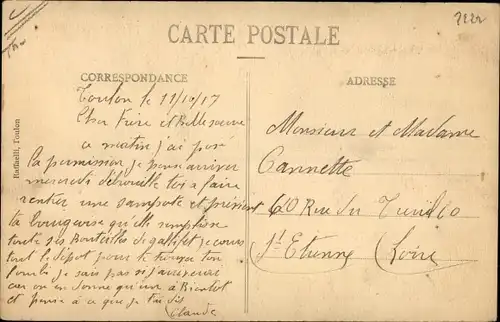 2224
CARTE POSTALE
CORRESPONDANCE
ADRESSE
Raffaelli, Toulon
Toulon le 11/10/17
Cher Frère et Belle soeur
ce matin j'ai posé
la permission je pense arriver
mercredi débrouille toi a faire
rentier une et prévient
ta qu'elle remplisse
toute ses Bouteilles de je cours
tout le Depot pour te trouver ton
je sais pas si j'arriverai
car on en donne qu'un à Bientot
et pense à ce que je t'ai dis
Claude
Monsieur et Madame
Cannette
60 Rue du
St Etienne (Loire)